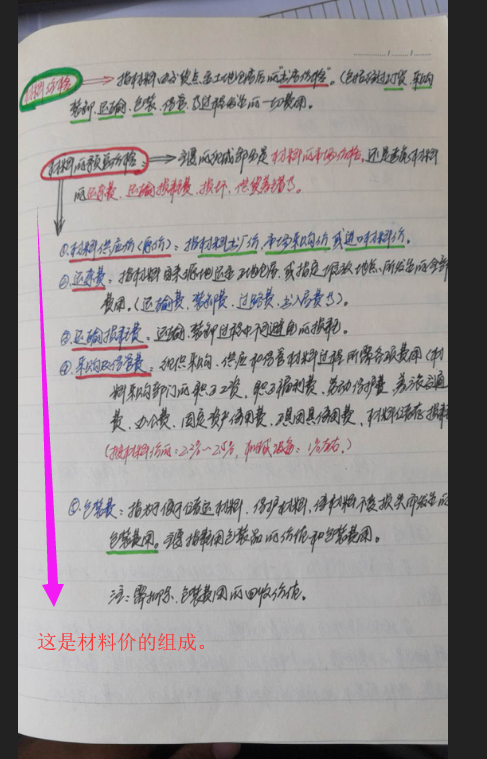 材料价格 指材料由交货点至工地仓库后的"出库价格"。(包括材料打火、采购
装卸、运输、包装、保管、等过程发生的一切费用。
材料的预算价格: 主要的组成部分是材料的市场价格,还是要有材料
的运杂费、运输损耗费、损坏、供货差错等。
①.材料供应价(原价):指材料出厂价,市场采购价或进口材料价。
②.运杂费:指材料自来源地运至工地仓库,或指定堆放地点,所发生的全部
费用。(运输费、装卸费、过路费、出入库费等)。
③.运输损耗费:运输装卸过程中不可避免的损耗。
④.采购及保管费:组织采购、供应和保管材料过程,所需各项费用(材
料采购部门的职工工资、职工福利费、劳动保护费、差旅交通
费、办公费、固定资产使用费、工具用具使用费、材料储存损耗
(按材料价的:2.2%~2.5%,机械设备:1%左右。)
⑤.包装费:指为了便于储运材料、保护材料、使材料不受损失而发生的
包装费用。主要指耗用包装品的价值和包装费用。
注:需扣除、包装费用的回收价值。
这是材料价的组成。